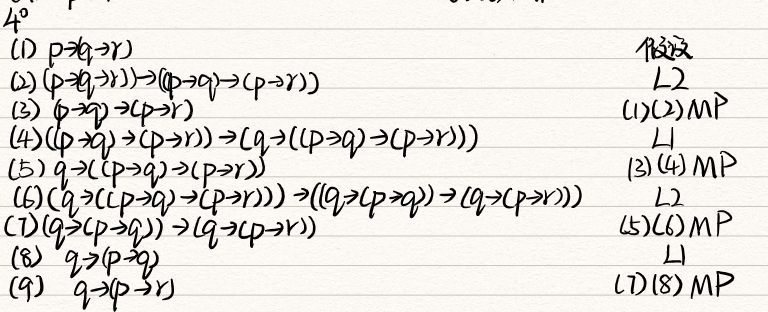 4°
(1) p→(q→r) 假设
(2) (p→(q→r))→((p→q)→(p→r)) L2
(3) (p→q)→(p→r) (1)(2) MP
(4) ((p→q)→(p→r))→(q→((p→q)→(p→r))) L1
(5) q→((p→q)→(p→r)) (3)(4) MP
(6) (q→((p→q)→(p→r)))→((q→(p→q))→(q→(p→r))) L2
(7) (q→(p→q))→(q→(p→r)) (5)(6) MP
(8) q→(p→q) L1
(9) q→(p→r) (7)(8) MP